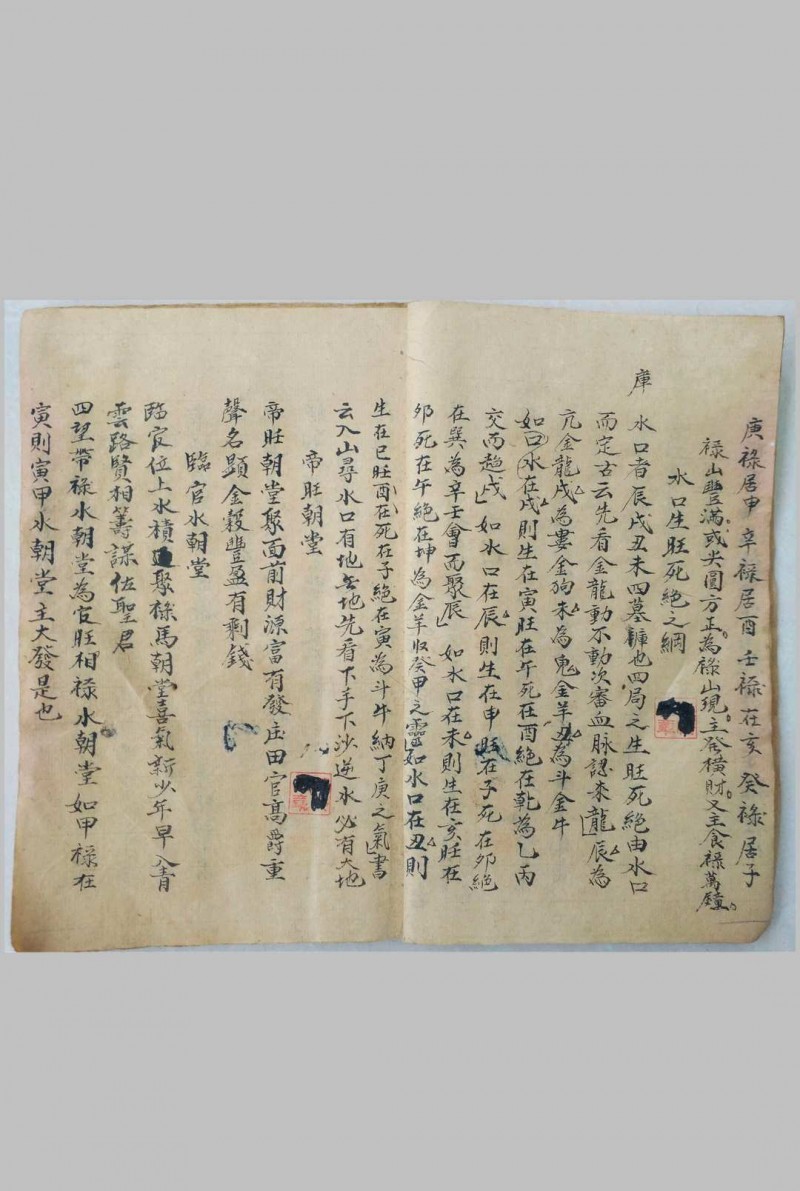 庚祿居申 辛祿居酉 壬祿在亥 癸祿居子
祿山豐滿或尖圓方正為祿山現主發橫財又主食祿萬鍾
水口生旺死絕之綱
庫 水口者辰戌丑未四墓龍也四局之生旺死絕由水口
而定古云先看金龍動不動次審血脉認來龍辰為
亢金龍戌為婁金狗未為鬼金羊丑為斗金牛
如水口在戌則生在寅旺在午死在酉絕在乾為乙丙
交而趨戌 如水口在辰則生在申旺在子死在卯絕
在巽為辛壬會而聚辰 如水口在未則生在亥旺在
卯死在午絕在坤為金羊收癸甲之靈如水口在丑則
生在巳旺酉在死在子絕在寅為斗牛納丁庚之氣書
云入山尋水口有地無地先看下手下沙逆水必有大地
帝旺朝堂
帝旺朝堂聚面前財源富有發庄田官高爵重
聲名顯金穀豐盈有剩錢
臨官水朝堂
臨官位上水積聚祿馬朝堂喜氣新少年早入青
雲路賢相籌謀佐聖君
四望帶祿水朝堂為官旺相祿水朝堂如甲祿在
寅則寅甲水朝堂主大發是也